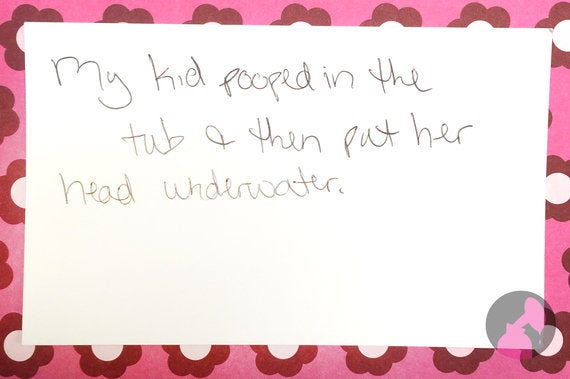 My kid pooped in the
tub & then put her
head underwater.